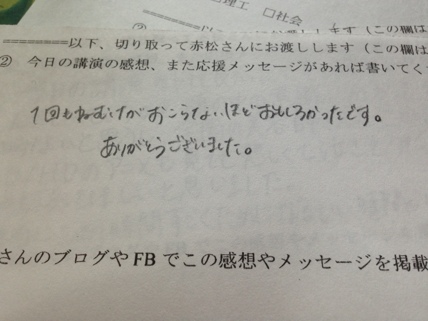 理工 口社会
=======以下、切り取って赤松さんにお渡しします（この欄は
② 今日の講演の感想、また応援メッセージがあれば書いてく
1回もねむけがおこらないほどおもしろかったです。
ありがとうございました。
さんのブログやFBでこの感想やメッセージを掲載